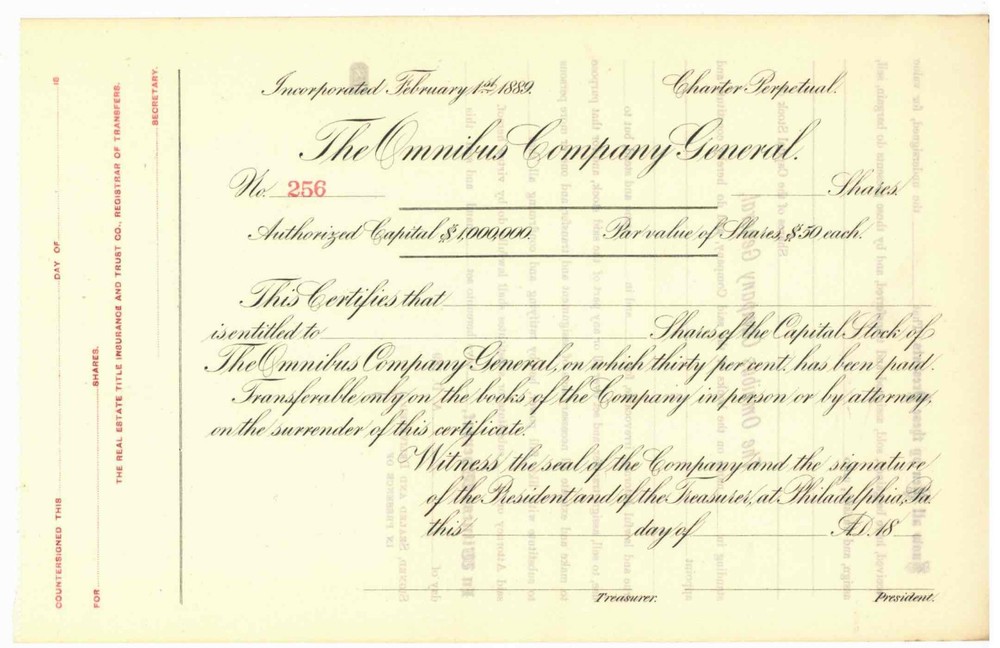 Incorporated February 1st 1889. Charter Perpetual.
The Omnibus Company General.
No. 256 Shares.
Authorized Capital $1,000,000. Par value of Shares, $50 each.
This Certifies that
is entitled to Shares of the Capital Stock of
The Omnibus Company General, on which thirty per cent. has been paid.
Transferable only on the books of the Company in person or by attorney,
on the surrender of this certificate.
Witness the seal of the Company and the signature
of the President and of the Treasurer, at Philadelphia, Pa.
this day of A.D. 18
Treasurer. President.
COUNTERSIGNED THIS DAY OF 18
FOR SHARES.
THE REAL ESTATE TITLE INSURANCE AND TRUST CO., REGISTRAR OF TRANSFERS.
SECRETARY.